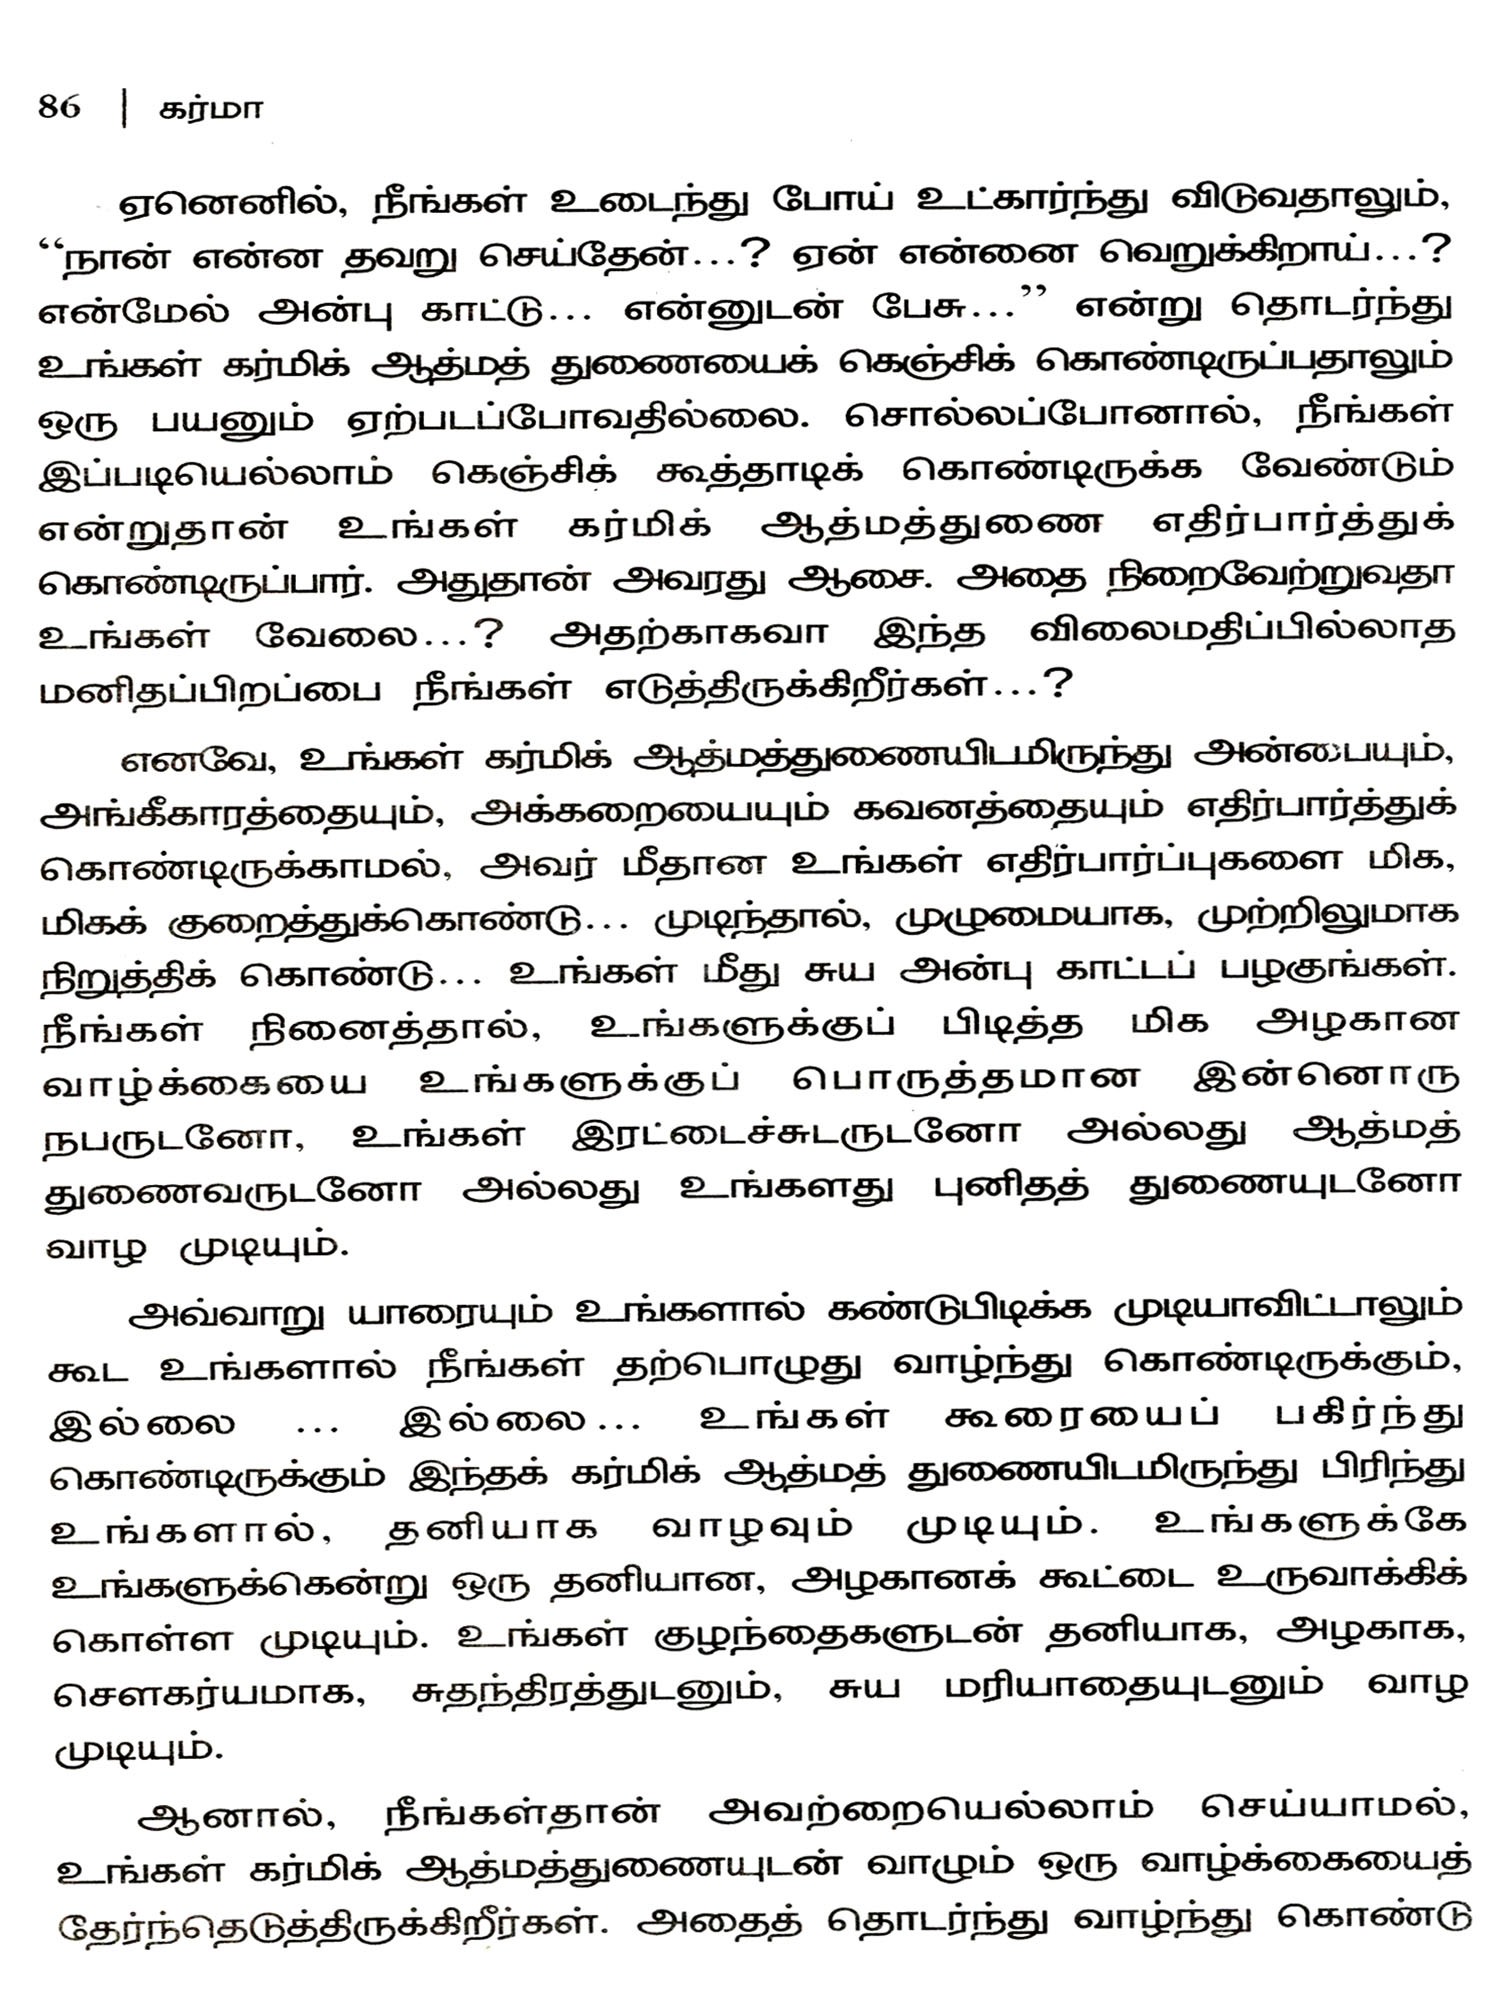 86 | கர்மா
ஏனெனில், நீங்கள் உடைந்து போய் உட்கார்ந்து விடுவதாலும்,
“நான் என்ன தவறு செய்தேன்...? ஏன் என்னை வெறுக்கிறாய்...?
என்மேல் அன்பு காட்டு... என்னுடன் பேசு...” என்று தொடர்ந்து
உங்கள் கர்மிக் ஆத்மத் துணையைக் கெஞ்சிக் கொண்டிருப்பதாலும்
ஒரு பயனும் ஏற்படப்போவதில்லை. சொல்லப்போனால், நீங்கள்
இப்படியெல்லாம் கெஞ்சிக் கூத்தாடிக் கொண்டிருக்க வேண்டும்
என்றுதான் உங்கள் கர்மிக் ஆத்மத்துணை எதிர்பார்த்துக்
கொண்டிருப்பார். அதுதான் அவரது ஆசை. அதை நிறைவேற்றுவதா
உங்கள் வேலை...? அதற்காகவா இந்த விலைமதிப்பில்லாத
மனிதப்பிறப்பை நீங்கள் எடுத்திருக்கிறீர்கள்...?
எனவே, உங்கள் கர்மிக் ஆத்மத்துணையிடமிருந்து அன்பையும்,
அங்கீகாரத்தையும், அக்கறையையும் கவனத்தையும் எதிர்பார்த்துக்
கொண்டிருக்காமல், அவர் மீதான உங்கள் எதிர்பார்ப்புகளை மிக,
மிகக் குறைத்துக்கொண்டு... முடிந்தால், முழுமையாக, முற்றிலுமாக
நிறுத்திக் கொண்டு... உங்கள் மீது சுய அன்பு காட்டப் பழகுங்கள்.
நீங்கள் நினைத்தால், உங்களுக்குப் பிடித்த மிக அழகான
வாழ்க்கையை உங்களுக்குப் பொருத்தமான இன்னொரு
நபருடனோ, உங்கள் இரட்டைச்சுடருடனோ அல்லது ஆத்மத்
துணைவருடனோ அல்லது உங்களது புனிதத் துணையுடனோ
வாழ முடியும்.
அவ்வாறு யாரையும் உங்களால் கண்டுபிடிக்க முடியாவிட்டாலும்
கூட உங்களால் நீங்கள் தற்பொழுது வாழ்ந்து கொண்டிருக்கும்,
இல்லை ... இல்லை... உங்கள் கூரையைப் பகிர்ந்து
கொண்டிருக்கும் இந்தக் கர்மிக் ஆத்மத் துணையிடமிருந்து பிரிந்து
உங்களால், தனியாக வாழவும் முடியும். உங்களுக்கே
உங்களுக்கென்று ஒரு தனியான, அழகானக் கூட்டை உருவாக்கிக்
கொள்ள முடியும். உங்கள் குழந்தைகளுடன் தனியாக, அழகாக,
சௌகர்யமாக, சுதந்திரத்துடனும், சுய மரியாதையுடனும் வாழ
முடியும்.
ஆனால், நீங்கள்தான் அவற்றையெல்லாம் செய்யாமல்,
உங்கள் கர்மிக் ஆத்மத்துணையுடன் வாழும் ஒரு வாழ்க்கையைத்
தேர்ந்தெடுத்திருக்கிறீர்கள். அதைத் தொடர்ந்து வாழ்ந்து கொண்டு